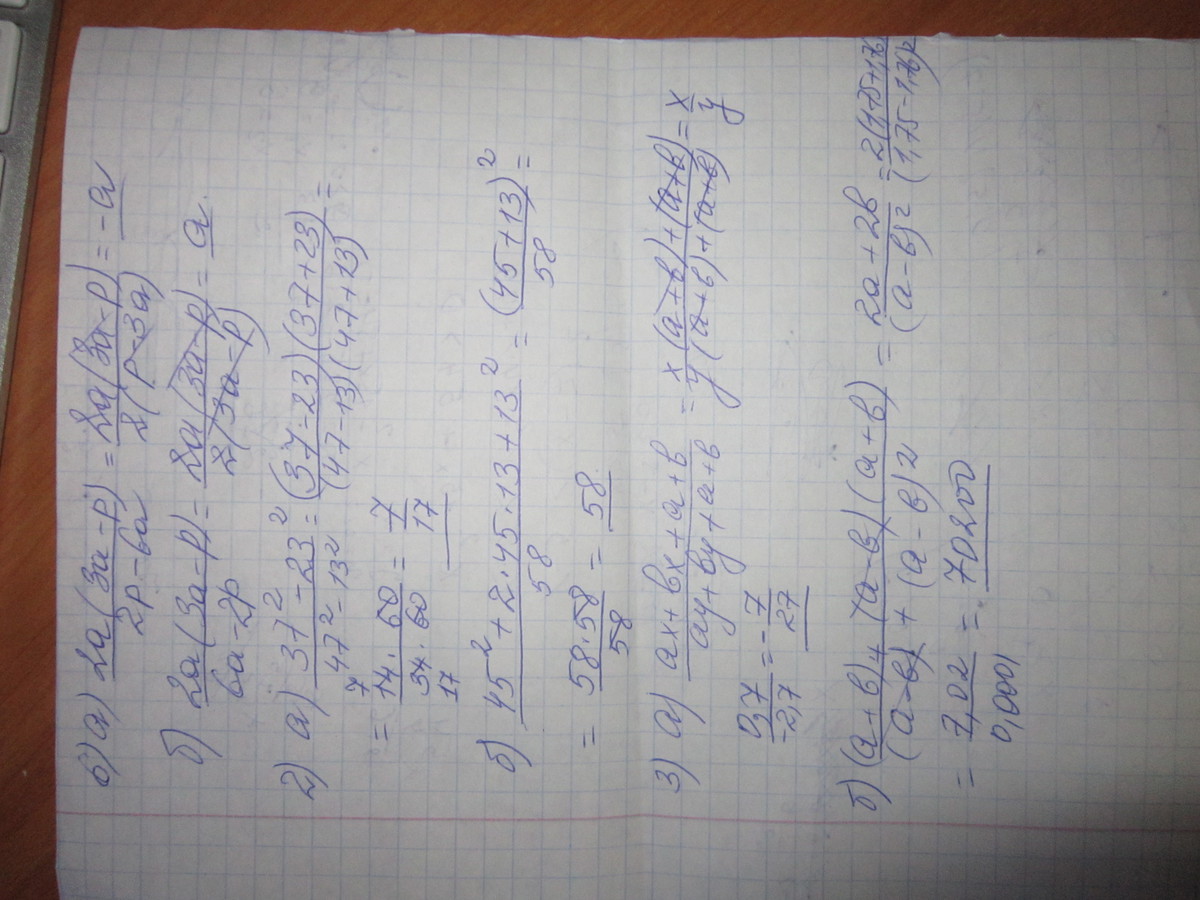 6) а) 2a(3a-p)/2p-6a = 2a(3a-p)/2(p-3a) = -a
б) 2a(3a-p)/6a-2p = 2a(3a-p)/2(3a-p) = a.
2) а) 37²-23²/47²-13² = (37-23)(37+23)/(47-13)(47+13) =
= 14·60/34·60 = 7/17
7
17
б) 45²+2·45·13+13²/58 = (45+13)²/58 =
= 58·58/58 = 58.
3) а) ax+bx+a+b/ay+by+a+b = x(a+b)+(a+b)/y(a+b)+(a+b) = x/y
0,7/-2,7 = -7/27
б) (a+b)+(a-b)(a+b)/(a-b)+(a-b)2 = 2a+2b/(a-b)2 = 2(1,75+1,76)/(1,75-1,76)2
= 7,02/0,0001 = 70200